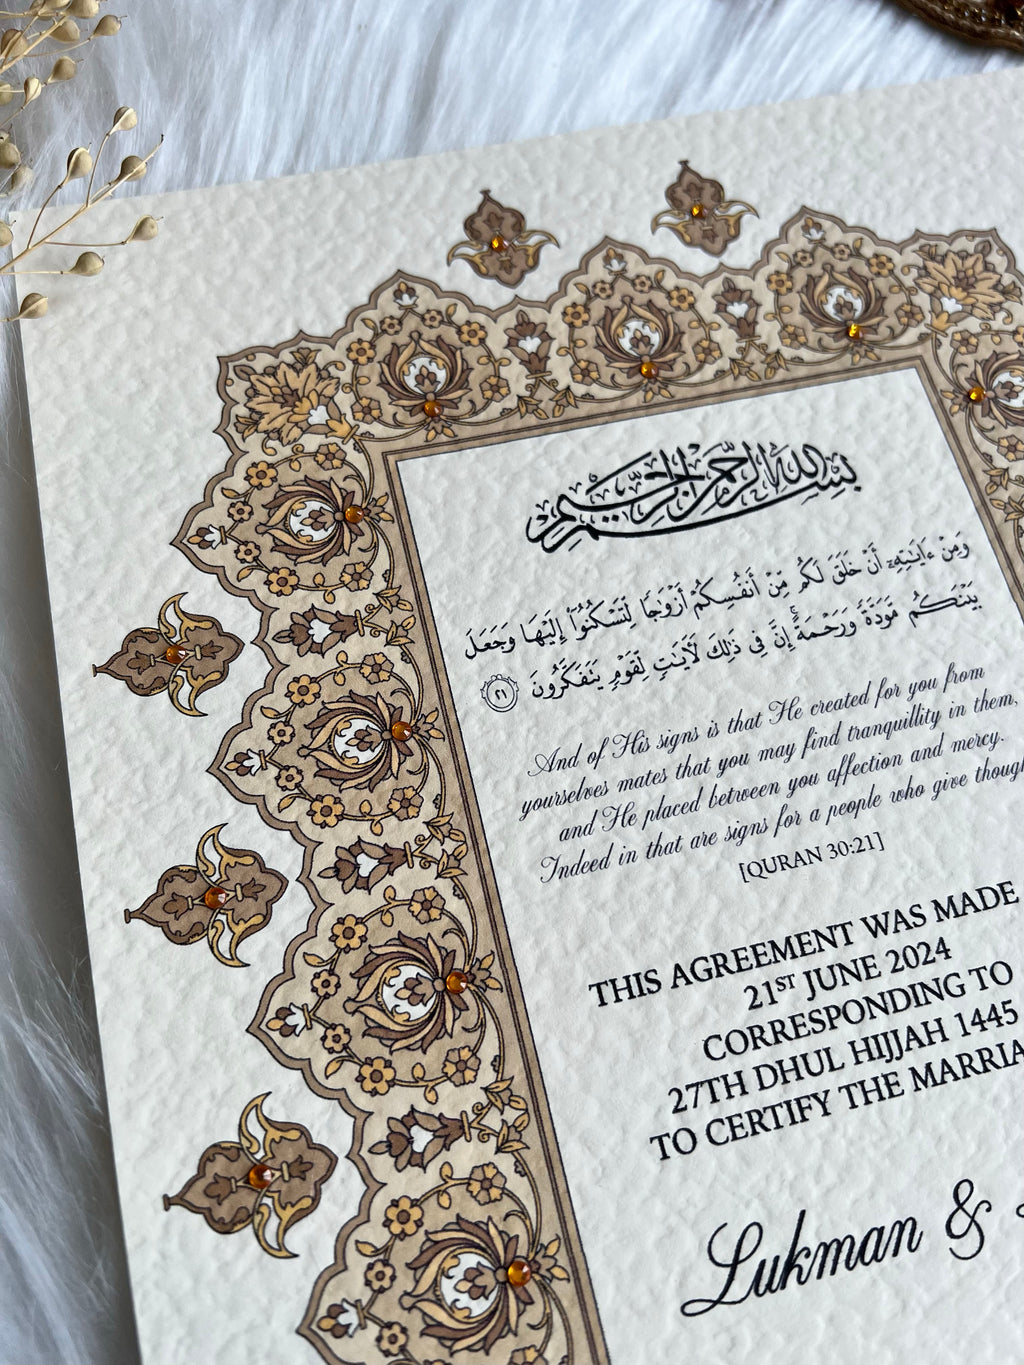 بِسْمِ اللَّهِ الرَّحْمَٰنِ الرَّحِيمِ
وَمِنْ ءَايَٰتِهِۦٓ أَنْ خَلَقَ لَكُم مِّنْ أَنفُسِكُمْ أَزْوَٰجًا لِّتَسْكُنُوٓا۟ إِلَيْهَا وَجَعَلَ
بَيْنَكُم مَّوَدَّةً وَرَحْمَةً ۚ إِنَّ فِى ذَٰلِكَ لَءَايَٰتٍ لِّقَوْمٍ يَتَفَكَّرُونَ ٢١
And of His signs is that He created for you from
yourselves mates that you may find tranquillity in them,
and He placed between you affection and mercy.
Indeed in that are signs for a people who give though
[QURAN 30:21]
THIS AGREEMENT WAS MADE
21ST JUNE 2024
CORRESPONDING TO
27TH DHUL HIJJAH 1445
TO CERTIFY THE MARRIA
Lukman &